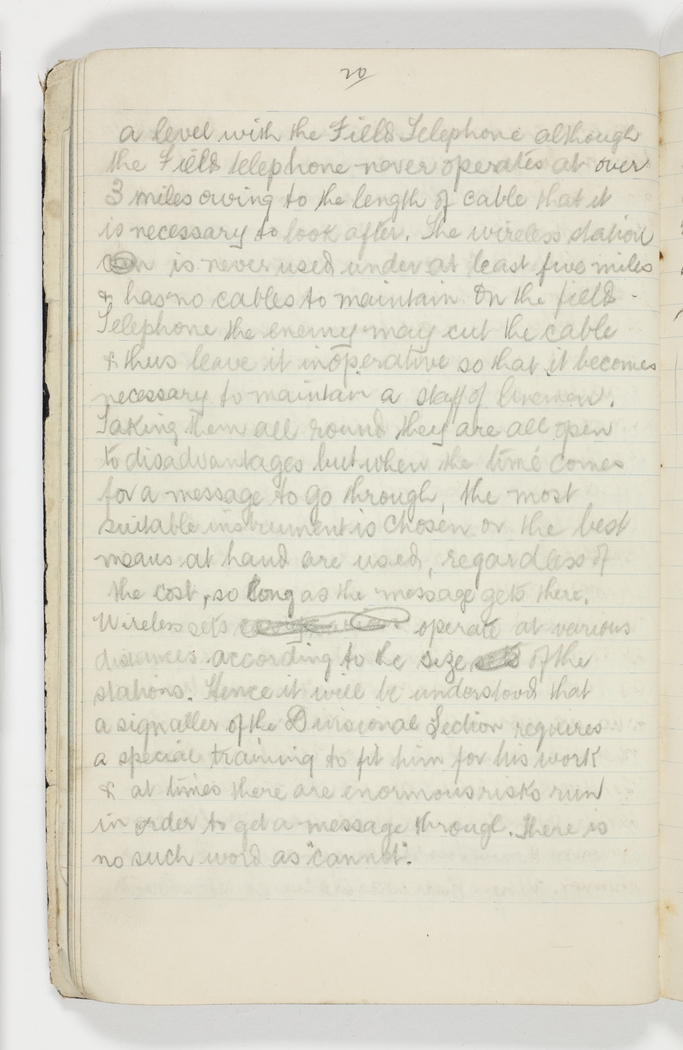 20
a level with the Field Telephone although
the Field telephone never operates at over
3 miles owing to the length of cable that it
is necessary to look after. The wireless station
is never used under at least five miles
& has no cables to maintain. On the field
Telephone the enemy may cut the cable
& thus leave it inoperative so that it becomes
necessary to maintain a staff of linemen.
Taking them all round they are all open
to disadvantages but when the time comes
for a message to go through, the most
suitable instrument is chosen or the best
means at hand are used, regardless of
the cost, so long as the message gets there.
Wireless sets operate at various
distances according to the size of the
stations. Hence it will be understood that
a signaller of the Divisional Section requires
a special training to fit him for his work
& at times there are enormous risks run
in order to get a message through. There is
no such word as "cannot".